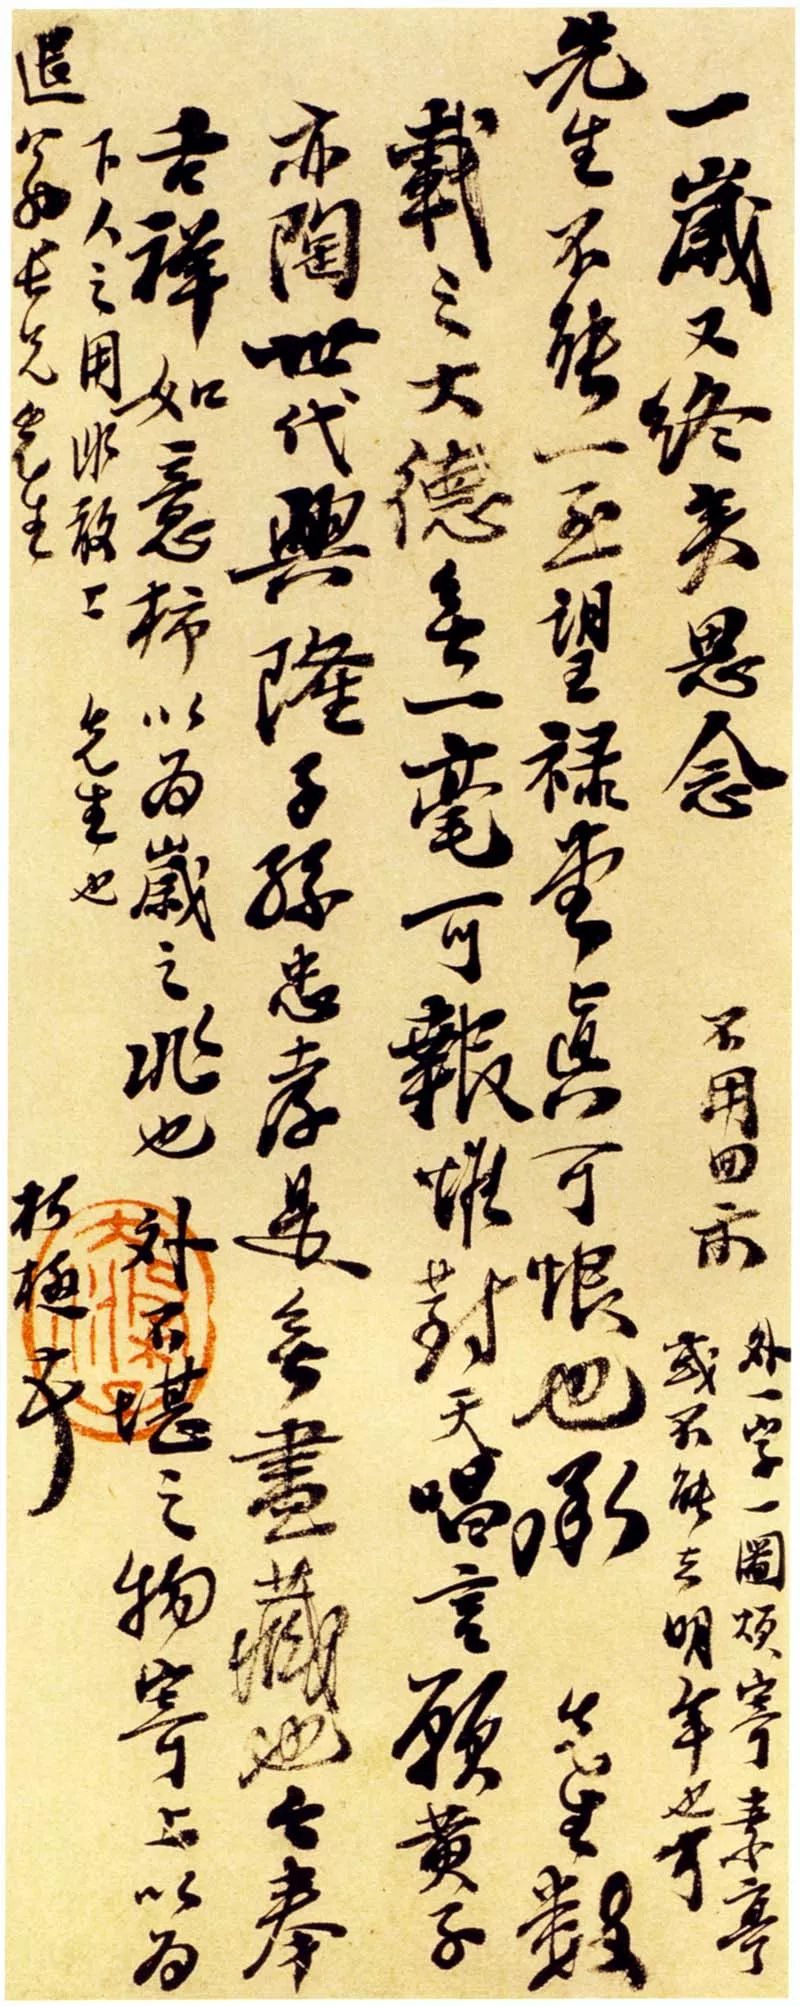 一歲又終矣思念
不用回示
外一字一圖煩寄素亭
或不能去明年也可
先生不能一至望祿堂真可恨也承 先生數
載之大德無一毫可報惟對天唱言願黃子
亦陶世代興隆子孫忠孝是吾畫藏也今奉
吉祥如意柿以為歲之兆也外不堪之物寄上以為
下人之用非敢上 先生也
退翁長兄先生
朽極